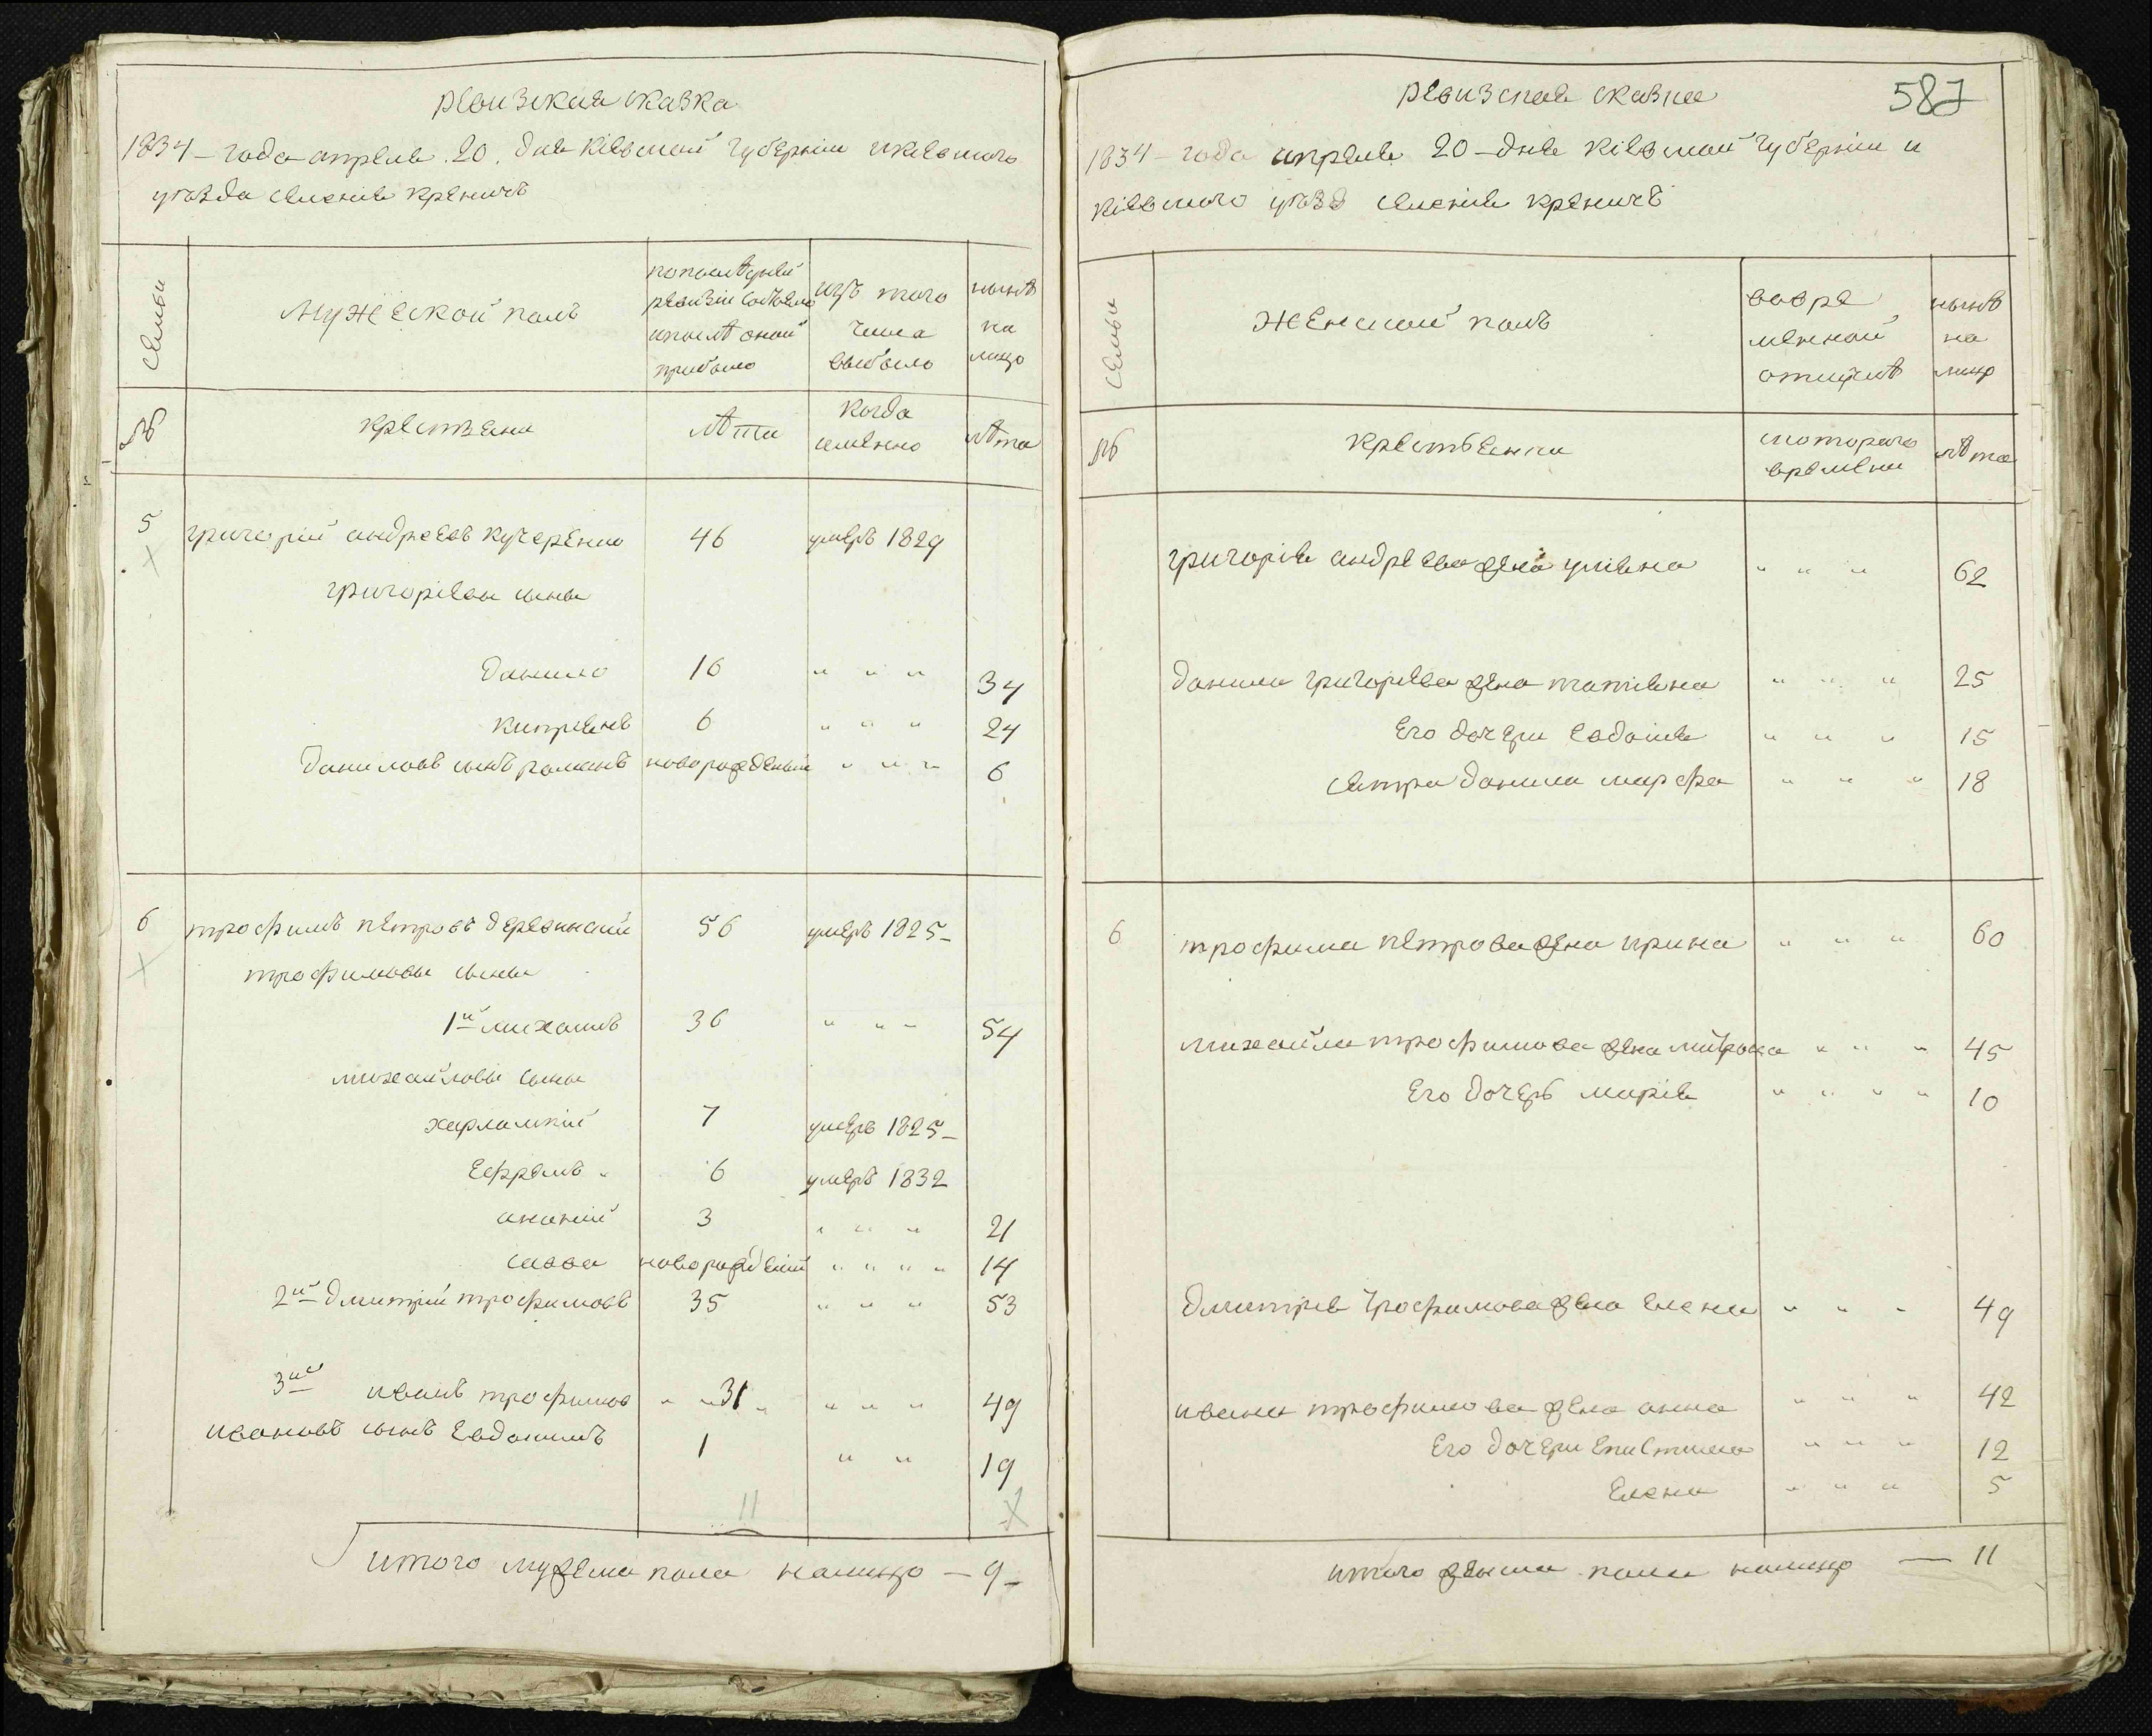 ревизская сказка
1834 – года апреля 20. дня Кіевской губерніи икіевского
уѣзда селенія креничъ
семьи
мужеской полъ
попослѣдней
ревизіи состояло
ипослѣ оной
прибыло
изъ того
числа
выбыло
нынѣ
на
лицо
№
крестяни
лѣта
когда
именно
лѣта
5
григорій андреевъ кучеренко 46 умеръ 1829
григорієвы сыны
данило 16 " " " 34
кипріянъ 6 " " " 24
даниловъ сынъ романъ новорожденый " " " 6
6
трофимъ петровъ деревинский 56 умеръ 1825 –
трофимовы сыны
1й михаилъ 36 " " " 54
михайловы сыны
харлампій 7 умеръ 1825 –
ефремъ 6 умеръ 1832
ананій 3 " " " 21
савва новорожденій " " " " 14
2й дмитрій трофимовъ 35 " " " 53
3ий иванъ трофимов " " 31 " " " " 49
ивановъ сынъ евдокимъ 1 " " 19
11
итого мужеска пола налицо – 9 –
587
ревизская сказка
1834 – года апреля 20 – дня Кіевской губерніи и
Кіевского уѣзд селенія креничъ
семьи
женской полъ
вовре
менной
отлучкѣ
нынѣ
на
лицо
№
крестьянки
скоторого
времени
лѣта
григорія андреева жена уліяна " " " 62
данила григорієва жена татіяна " " " 25
его дочери евдокія " " " 15
сестра данила марфа " " " 18
6
трофима петрова жена ирина " " " 60
михайла трофимова жена " " " 45
его дочерь марія " " " " 10
дмитрія трофимова жена елена " " " 49
ивана трофимова жена анна " " " 42
его дочери епистима " " " 12
елена " " " 5
итого женска пола налицо — 11